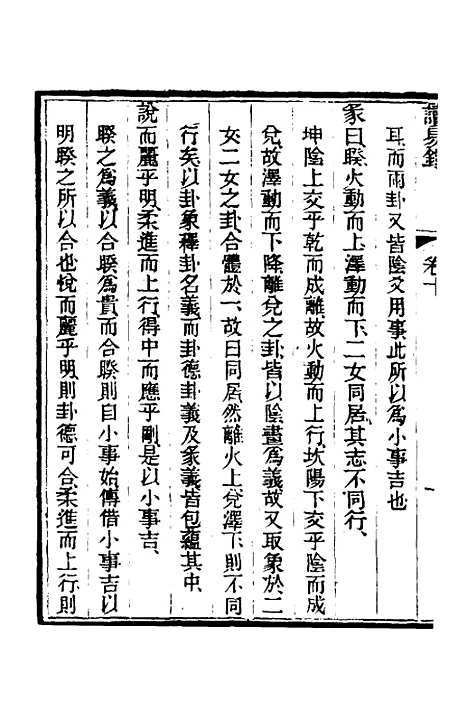 讀易鏡
卷十
耳而兩卦又皆陰爻用事此所以爲小事吉也
彖曰睽火動而上澤動而下二女同居其志不同行、
坤陰上交乎乾而成離故火動而上行坎陽下交乎陰而成
兌故澤動而下降離兌之卦皆以陰畫爲義故又取象於二
女二女之卦合體於一故曰同居然離火上兌澤下則不同
行矣以卦象釋卦名義而卦德卦義及彖義皆包蘊其中
說而麗乎明柔進而上行得中而應乎剛是以小事吉、
睽之爲義以合睽爲貴而合睽則自小事始傳借小事吉以
明睽之所以合也悅而麗乎明則卦德可合柔進而上行則